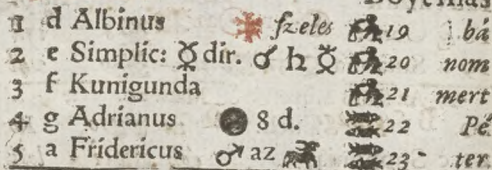 1 d Albinus szeles 19 bá
2 e Simplic: ☿ dir. ☌ ♄ ☿ 20 nom
3 f Kunigunda 21 mert
4 g Adrianus ● 8 d. 22 Pé
5 a Fridericus ♂ az 23 ter